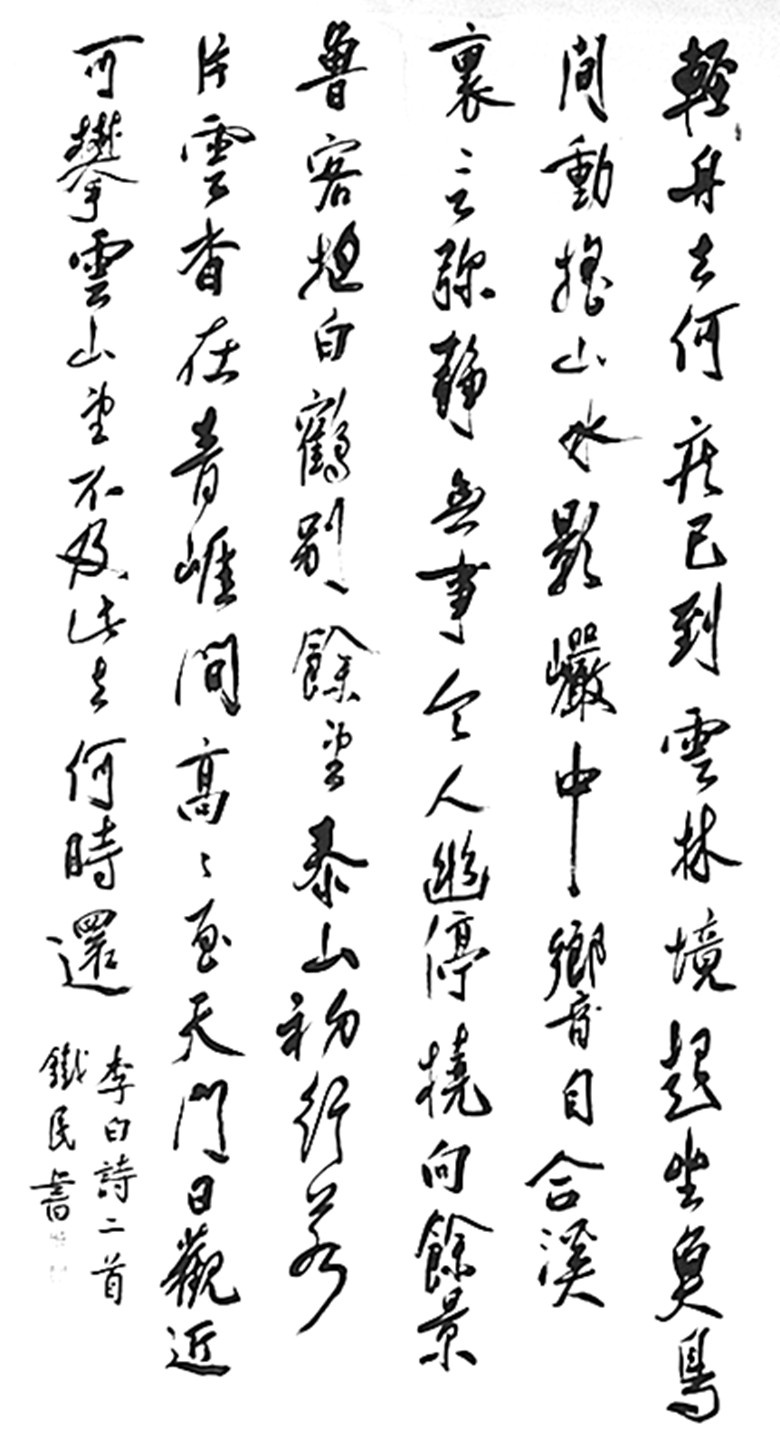 輕舟去何疾已到雲林境起坐魚鳥
間動搖山水影巖中響自合溪
裏言彌靜無事令人幽停橈向餘景
魯客抱白鶴別餘望泰山初行若
片雲杳在青崕間高〻至天門日觀近
可攀雲山望不及此去何時還
李白詩二首
鐵民書